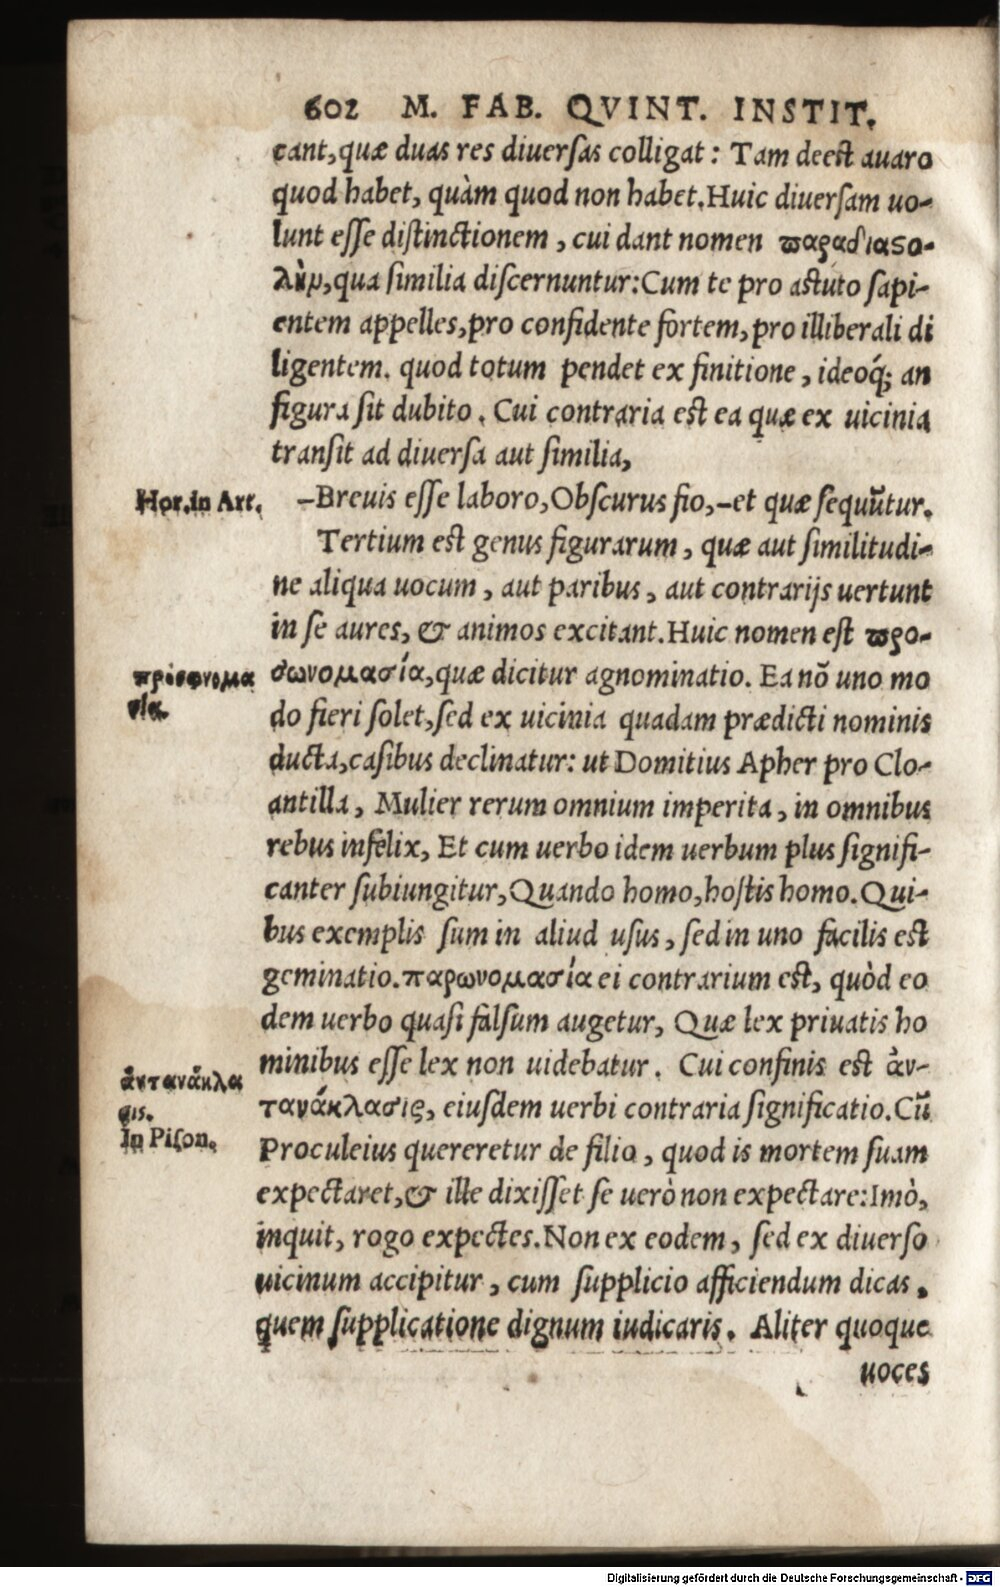 602 M. FAB. QVINT. INSTIT.
cant,quæ duas res diuersas colligat: Tam deest auaro
quod habet, quàm quod non habet.Huic diuersam uo-
lunt esse distinctionem, cui dant nomen παραδιαϛο-
λὴν,qua similia discernuntur:Cum te pro astuto sapi-
entem appelles,pro confidente fortem,pro illiberali di
ligentem. quod totum pendet ex finitione, ideoq́; an
figura sit dubito. Cui contraria est ea quæ ex uicinia
transit ad diuersa aut similia,
Hor.in Art. -Breuis esse laboro,Obscurus fio,-et quæ sequūtur.
Tertium est genus figurarum, quæ aut similitudi-
ne aliqua uocum, aut paribus, aut contrarijs uertunt
in se aures, & animos excitant.Huic nomen est προ-
πρόσωνομα σωνομασία,quæ dicitur agnominatio. Ea nō uno mo
σία. do fieri solet,sed ex uicinia quadam prædicti nominis
ducta,casibus declinatur: ut Domitius Apher pro Clo-
antilla, Mulier rerum omnium imperita, in omnibus
rebus infelix, Et cum uerbo idem uerbum plus signifi-
canter subiungitur,Quando homo,hostis homo.Qui-
bus exemplis sum in aliud usus, sed in uno facilis est
geminatio.παρωνομασία ei contrarium est, quòd eo
dem uerbo quasi falsum augetur, Quæ lex priuatis ho
minibus esse lex non uidebatur. Cui confinis est ἀν-
ἀντανάκλα τανάκλασις, eiusdem uerbi contraria significatio.Cū
σις.
In Pison. Proculeius quereretur de filio, quod is mortem suam
expectaret,& ille dixisset se uerò non expectare:Imò,
inquit, rogo expectes.Non ex eodem, sed ex diuerso
uicinum accipitur, cum supplicio afficiendum dicas,
quem supplicatione dignum iudicaris. Aliter quoque
uoces
Digitalisierung gefördert durch die Deutsche Forschungsgemeinschaft - DFG